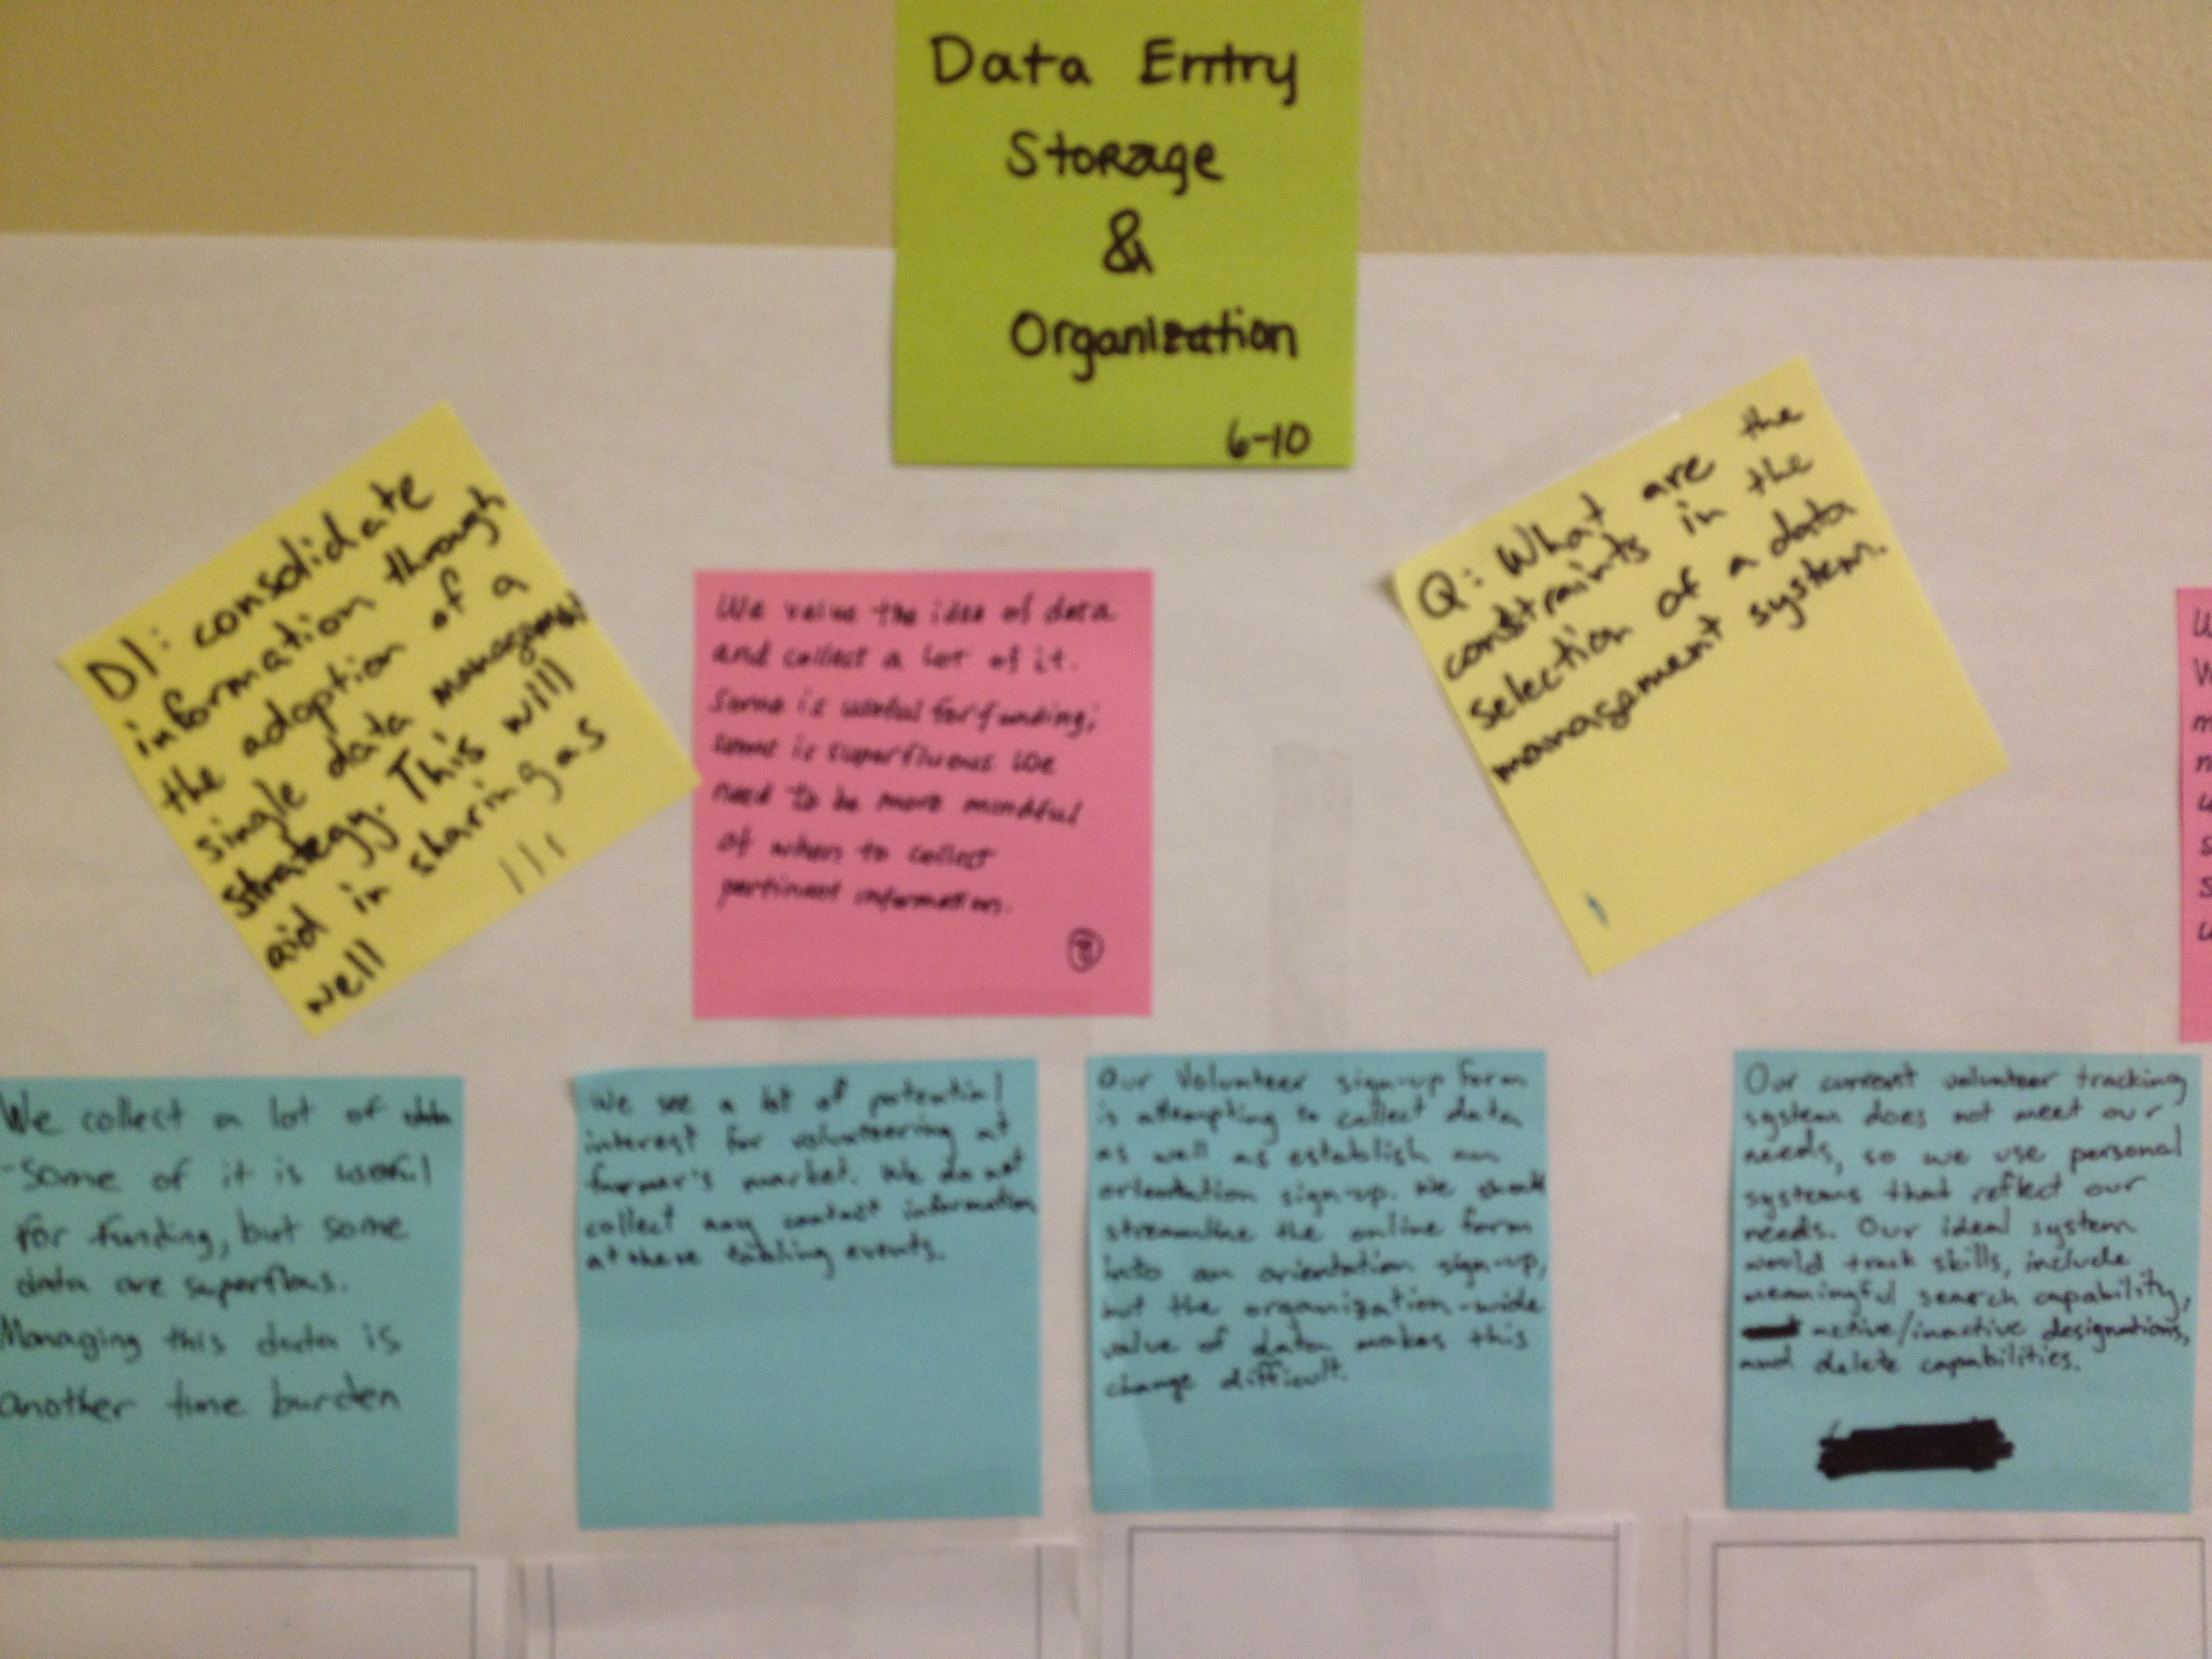 Data Entry
Storage
&
Organization
6-10
DI: consolidate
information through
the adoption of a
single data management
strategy. This will
aid in sharing as
well
We value the idea of data
and collect a lot of it.
Some is useful for funding;
some is superfluous we
need to be more mindful
of when to collect
pertinent information.
Q: What are the
constraints in the
selection of a data
management system.
We collect a lot of data
-Some of it is useful
for funding, but some
data are superflous.
Managing this data is
another time burden
We see a lot of potential
interest for volunteering at
farmer's market. We do not
collect any contact information
at these tabling events.
Our Volunteer sign-up form
is attempting to collect data
as well as establish an
orientation sign-up. We should
streamline the online form
into an orientation sign-up,
but the organization-wide
value of data makes this
change difficult.
Our current volunteer tracking
system does not meet our
needs, so we use personal
systems that reflect our
needs. Our ideal system
would track skills, include
meaningful search capability,
active/inactive designations,
and delete capabilities.